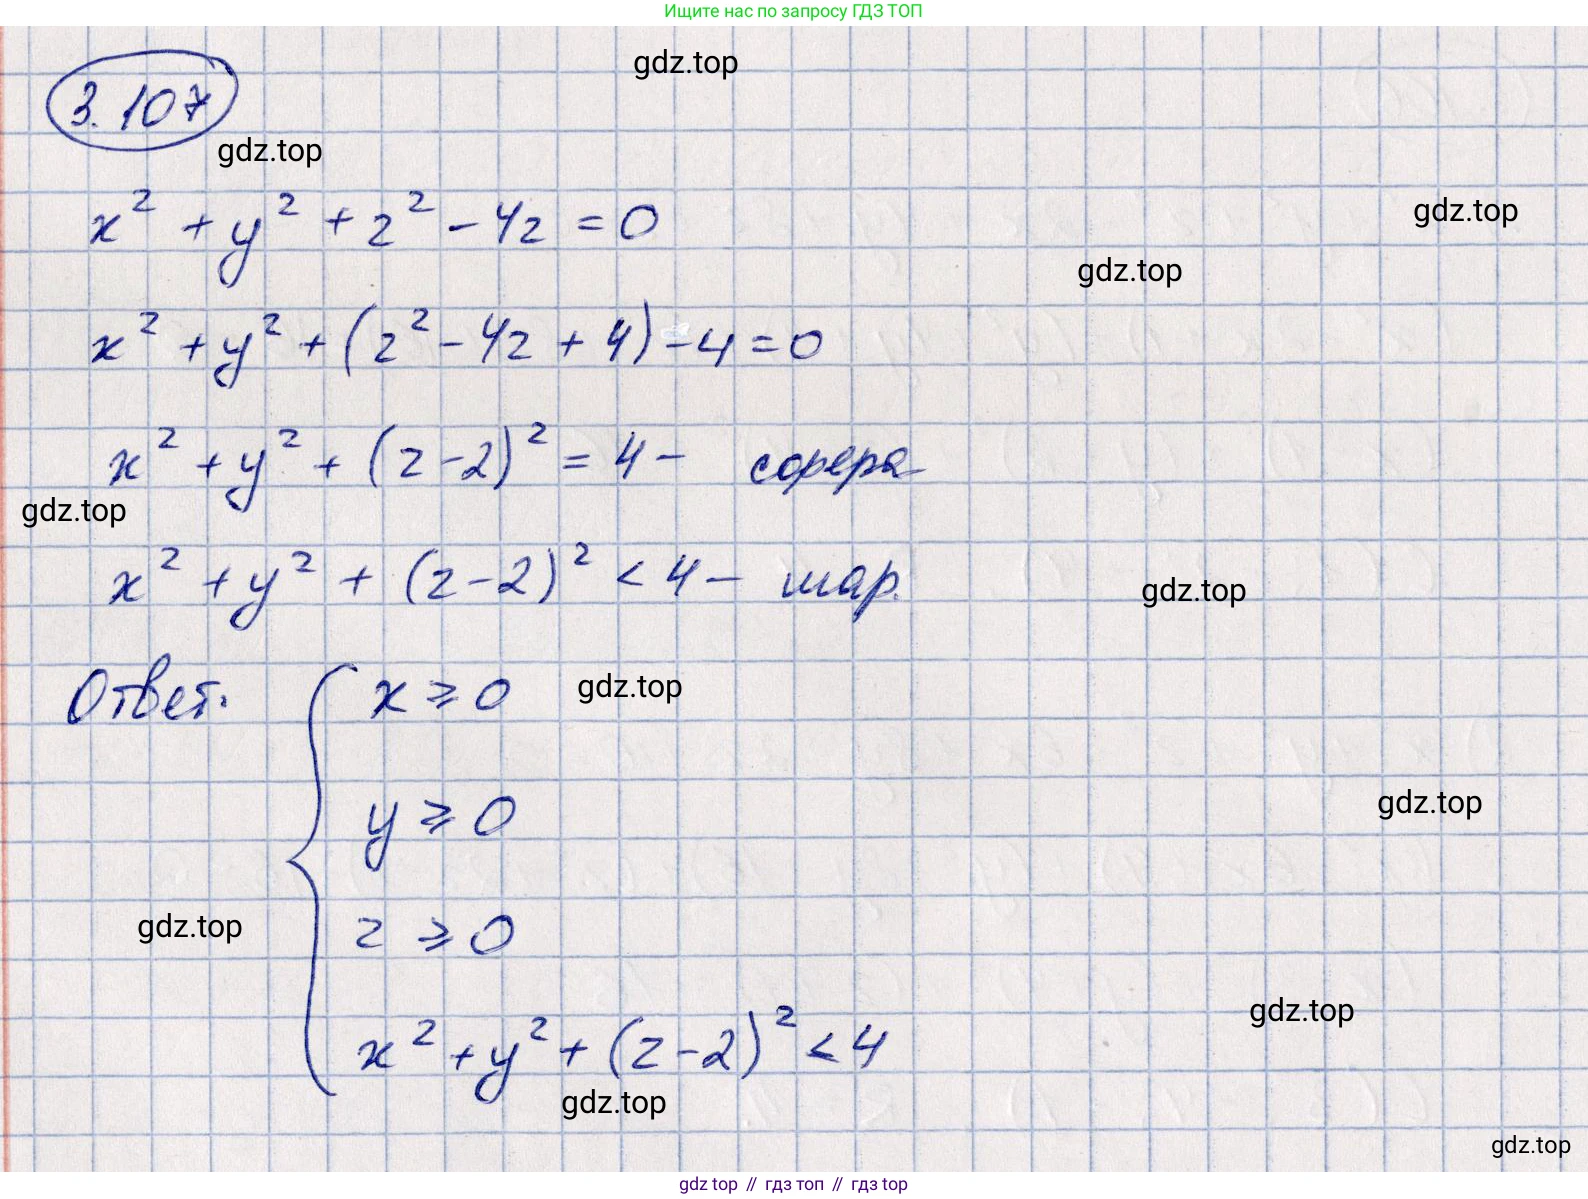 Ищите нас по запросу ГДЗ ТОП
gdz.top
3.107
gdz.top
x² + y² + z² - 4z = 0
gdz.top
gdz.top
x² + y² + (z² - 4z + 4) - 4 = 0
x² + y² + (z - 2)² = 4 - сфера
gdz.top
x² + y² + (z - 2)² < 4 - шар.
gdz.top
Ответ: { x ⩾ 0
gdz.top
y ⩾ 0
gdz.top
z ⩾ 0
gdz.top
x² + y² + (z - 2)² < 4
gdz.top
gdz.top
gdz.top
gdz.top // гдз топ // гдз top